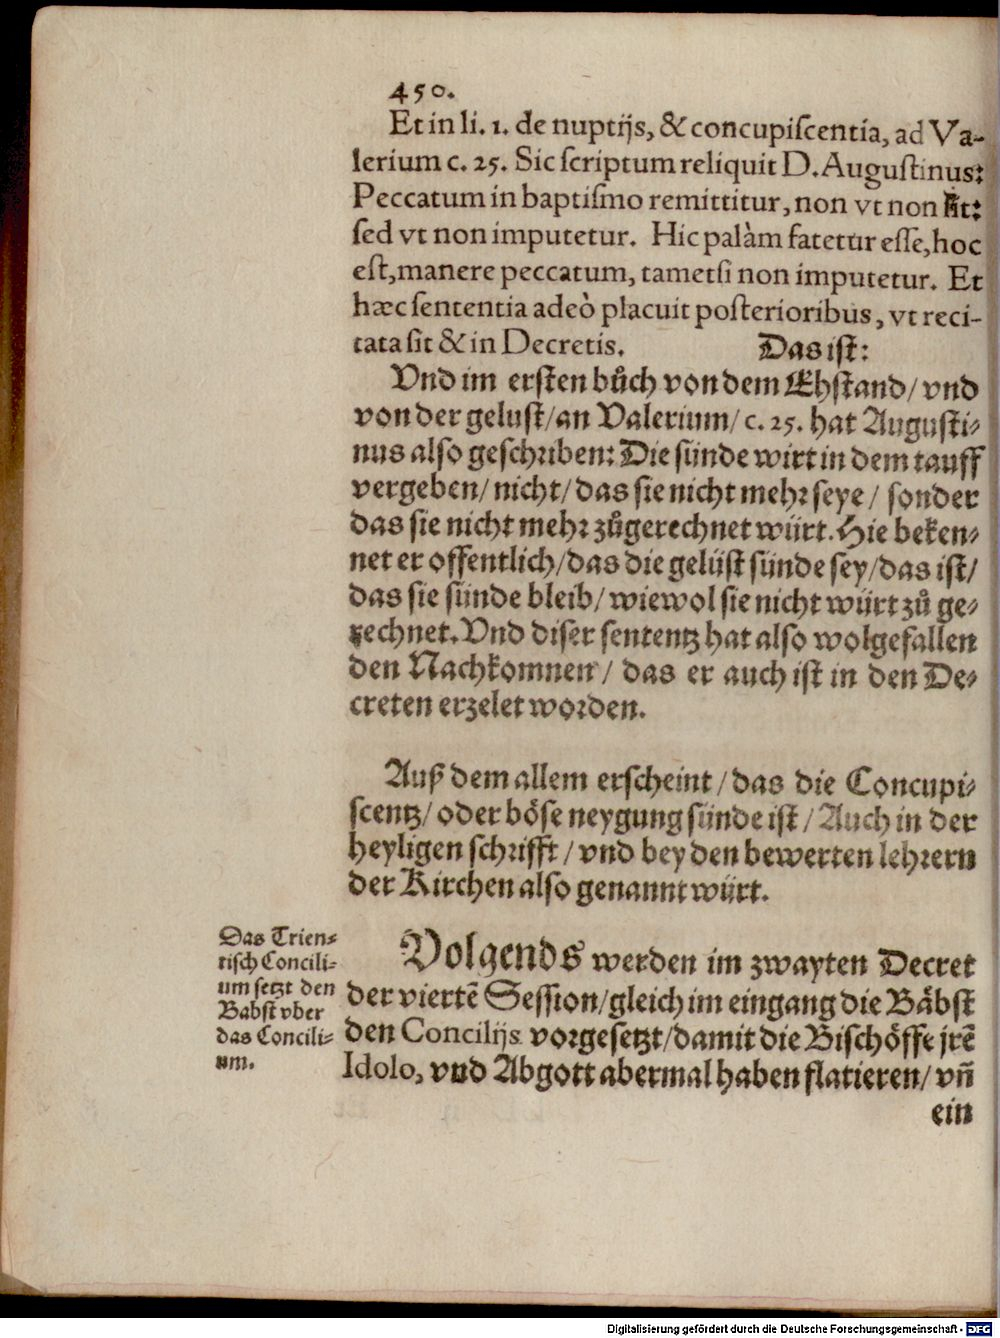 450.
Et in li. 1. de nuptijs, & concupiſcentia, ad Va-
lerium c. 25. Sic ſcriptum reliquit D. Auguſtinus:
Peccatum in baptiſmo remittitur, non vt non ſit:
ſed vt non imputetur. Hic palàm fatetur eſſe, hoc
eſt, manere peccatum, tametſi non imputetur. Et
hæc ſententia adeò placuit poſterioribus, vt reci-
tata ſit & in Decretis. Das iſt:
Vnd im erſten bůch von dem Ehſtand/ vnd
von der geluſt/ an Valerium/ c. 25. hat Auguſti-
nus alſo geſchriben: Die ſünde wirt in dem tauff
vergeben/ nicht/ das ſie nicht mehr ſeye/ ſonder
das ſie nicht mehr zůgerechnet würt. Hie beken-
net er offentlich/ das die gelüſt ſünde ſey/ das iſt/
das ſie ſünde bleib/ wiewol ſie nicht würt zů ge-
rechnet. Vnd diſer ſententz hat alſo wolgefallen
den Nachkomnen/ das er auch iſt in den De-
creten erzelet worden.
Auß dem allem erſcheint/ das die Concupi-
ſcentz/ oder böſe neygung ſünde iſt/ Auch in der
heyligen ſchrifft/ vnd bey den bewerten lehrern
der Kirchen alſo genannt würt.
Das Trien-
tiſch Concili-
um ſetzt den
Babſt vber
das Concili-
um.
Volgends werden im zwayten Decret
der viertẽ Seſſion/ gleich im eingang die Bäbſt
den Concilijs vorgeſetzt/ damit die Biſchöffe jrẽ
Idolo, vnd Abgott abermal haben flatieren/ vñ
ein
Digitalisierung gefördert durch die Deutsche Forschungsgemeinschaft - DFG